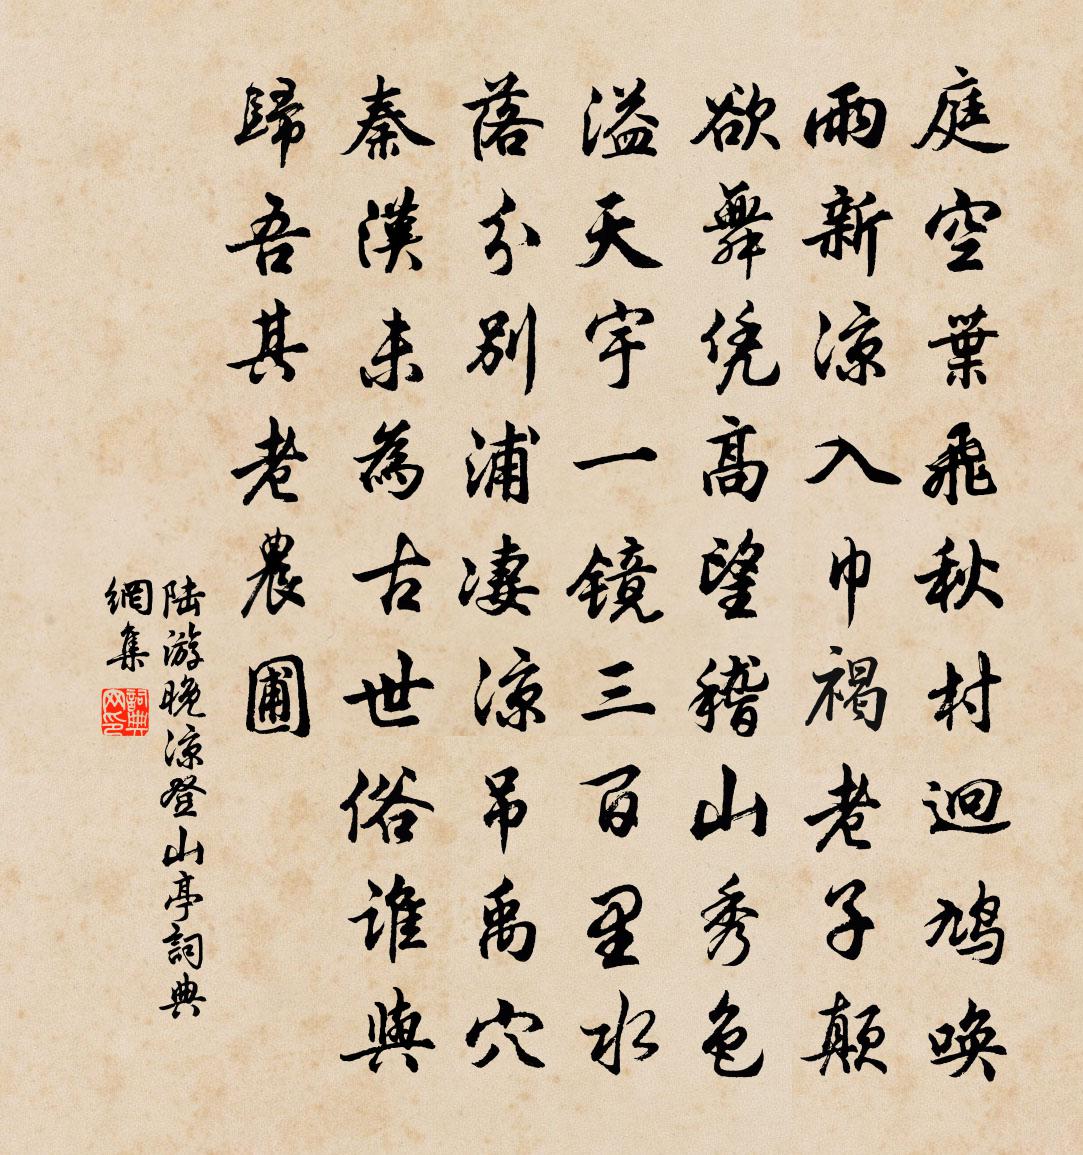 庭空葉飛秋村迥鳩喚
雨新凉入巾褐老子顛
欲舞凭高望稽山秀色
溢天宇一镜三百里水
落分別浦凄凉吊禹穴
秦漢未為古世俗谁與
歸吾其老農圃
陆游晚凉登山亭詞典
網集
詞典
网印